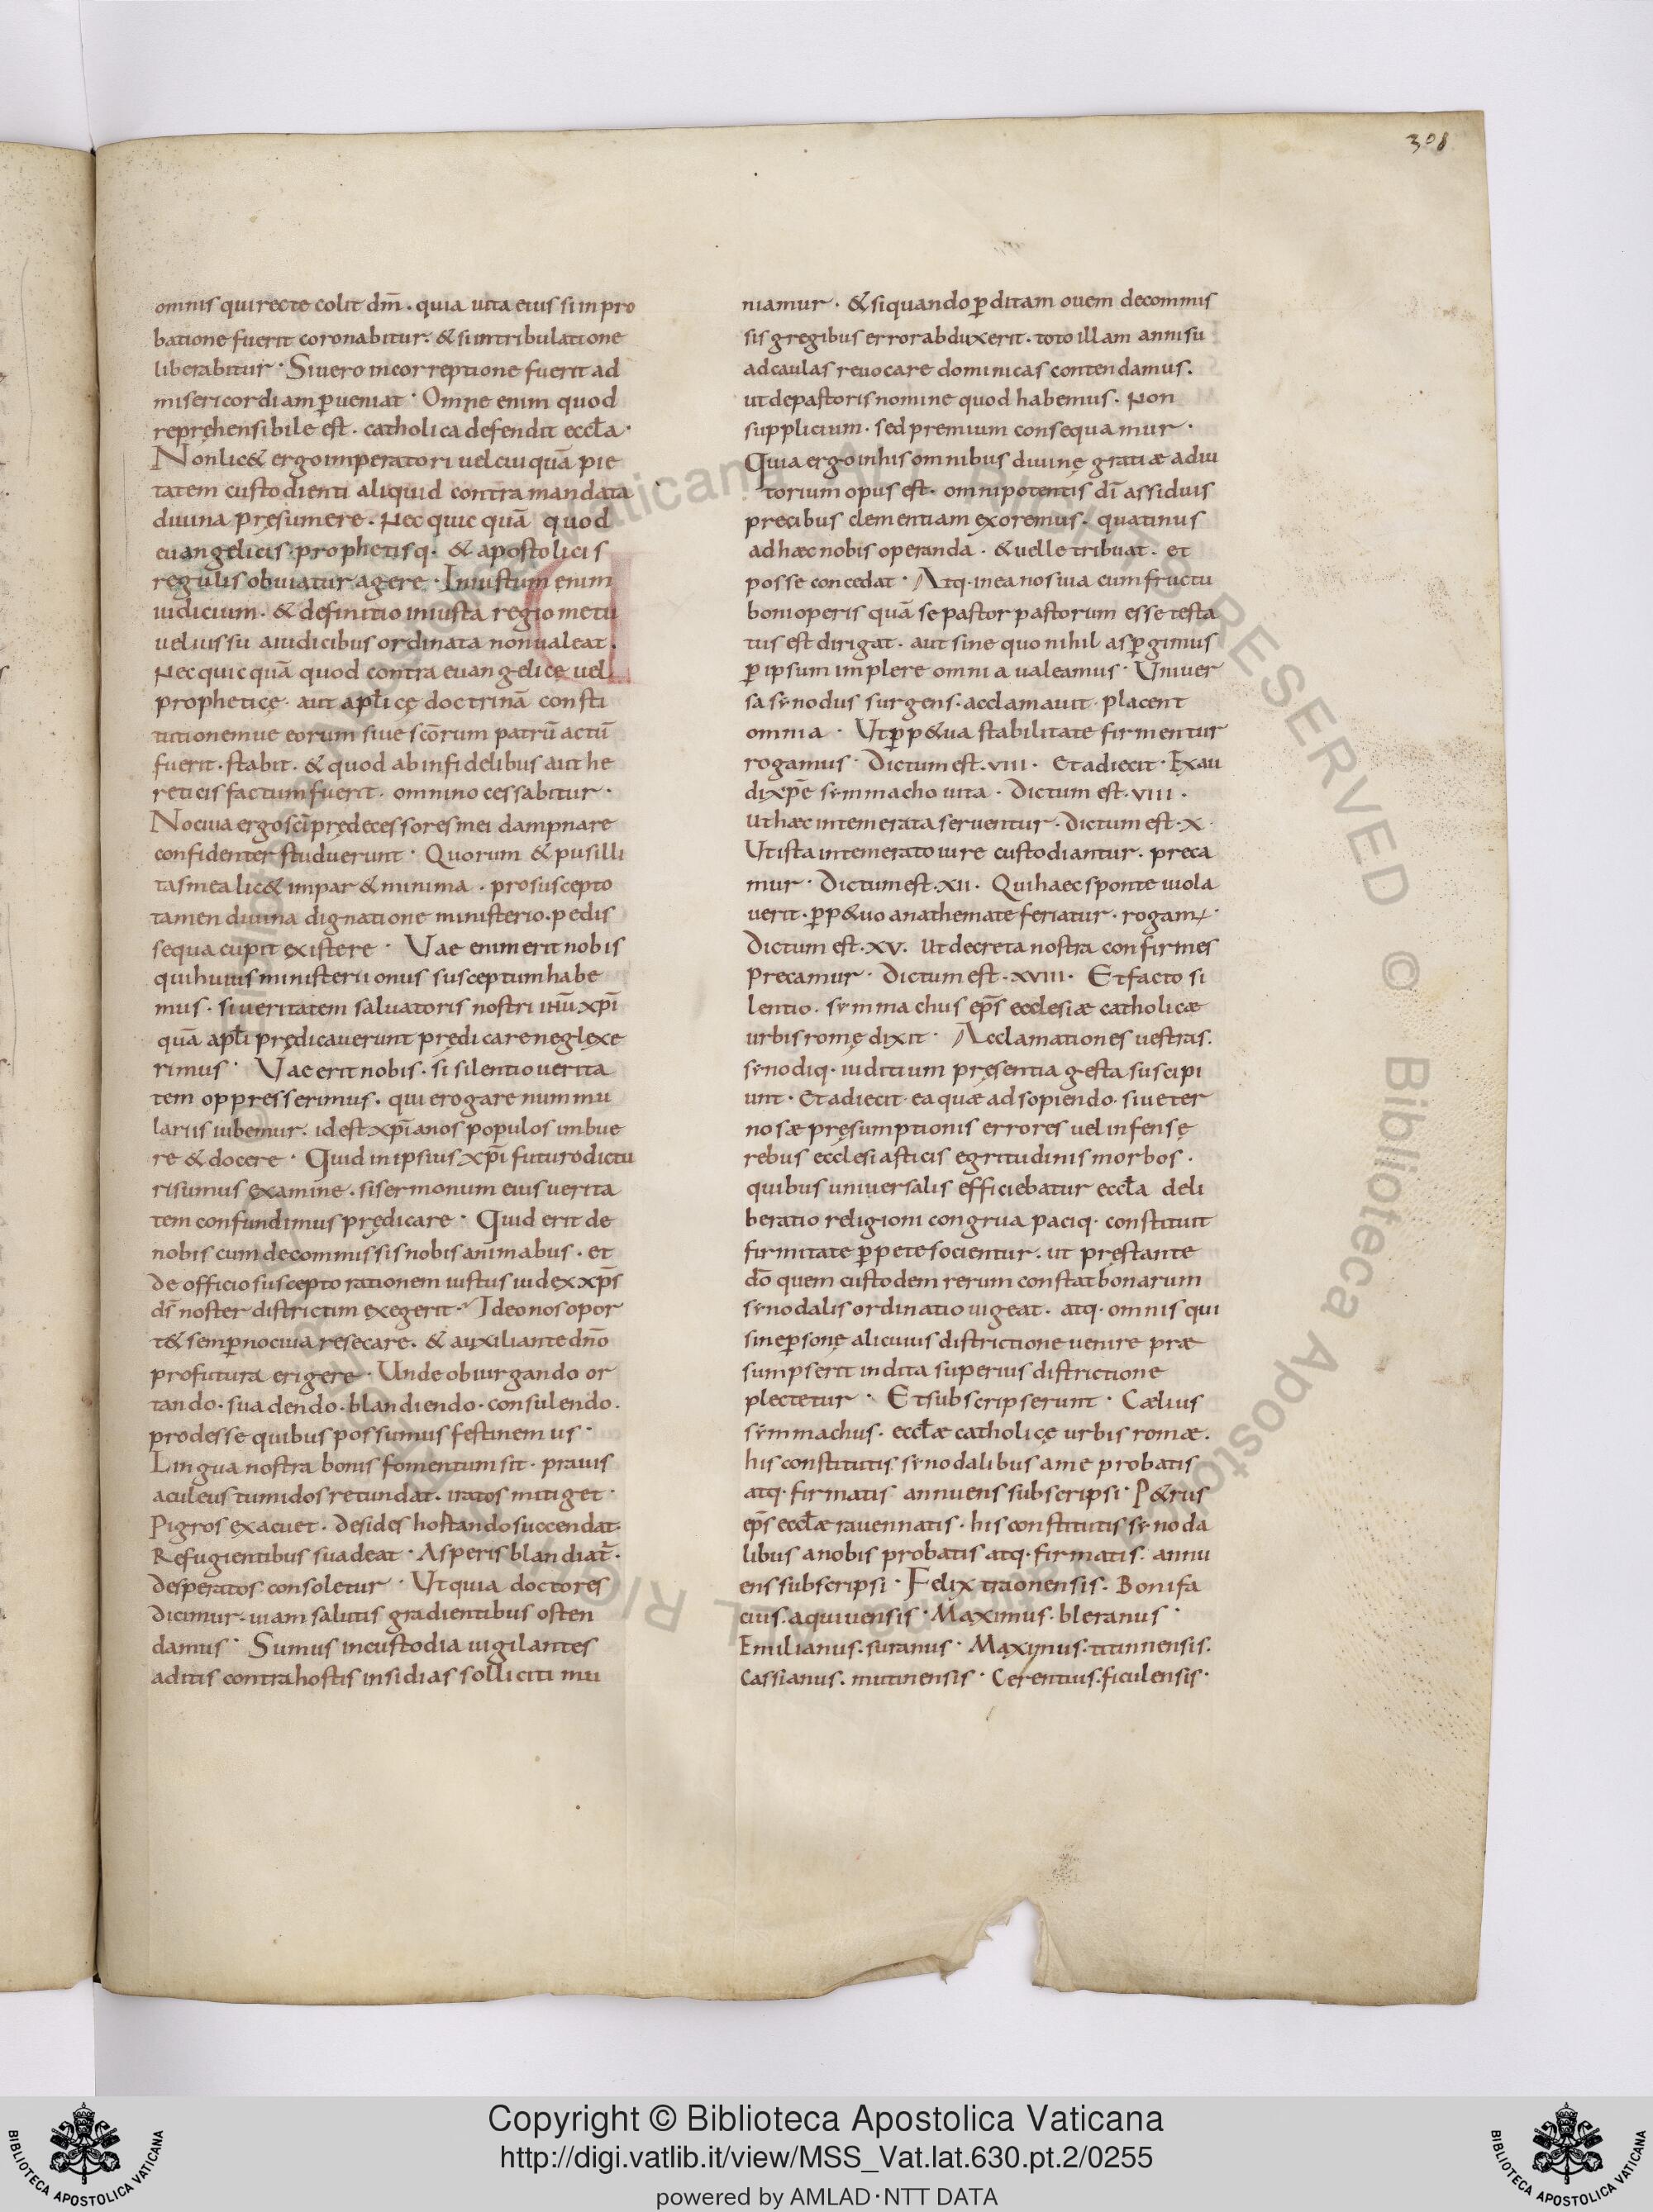 308
omnis qui recte colit dm̄. quia uita eius si in pro
batione fuerit coronabitur. & si in tribulatione
liberabitur. Si uero in correptione fuerit ad
misericordiam ꝑueniat. Omne enim quod
repręhensibile est. catholica defendit eccɫa.
Non lic& ergo imperatori uel cuiquā pie
tatem custodienti aliquid contra mandata
diuina pręsumere. Nec quicquā quod
euangelicis. prophetisq. & apostolicis
regulis obuiatur agere. Iniustum enim
iudicium. & definitio iniusta regio metu
uel iussu a iudicibus ordinata non ualeat.
Nec quicquā quod contra euangelicę uel
propheticę. aut apɫicę doctrinā consti
tutionemue eorum siue scōrum patrū actū
fuerit. stabit. & quod ab infidelibus aut he
reticis factum fuerit. omnino cessabitur.
Nociua ergo sci̅ prędecessores mei dampnare
confidenter studuerunt. Quorum & pusilli
tas mea lic& impar & minima. pro suscepto
tamen diuina dignatione ministerio. pedis
sequa cupit existere. Vae enim erit nobis
qui huius ministerii onus susceptum habe
mus. si ueritatem saluatoris nostri ihū xp̄i
quā apɫi prędicauerunt prędicare neglexe
rimus. Vae erit nobis. si silentio uerita
tem oppresserimus. qui erogare nummu
lariis iubemur. id est xp̄ianos populos imbue
re & docere. Quid in ipsius xp̄i futuro dictu
ri sumus examine. si sermonum eius uerita
tem confundimus prędicare. Quid erit de
nobis cum de commissis nobis animabus. et
de officio suscepto rationem iustus iudex xp̄s
ds̄ noster districtim exegerit. Ideo nos opor
t& semꝑ nociua resecare. & auxiliante dn̄o
profutura erigere. Unde obiurgando or
tando. suadendo. blandiendo. consulendo.
prodesse quibus possumus festinemus.
Lingua nostra bonis fomentum sit. prauis
aculeus tumidos retundat. iratos mitiget.
Pigros exacuet. desides hostando succendat.
Refugientibus suadeat. Asperis blandiat̄.
desperatos consoletur. Ut quia doctores
dicimur. uiam salutis gradientibus osten
damus. Sumus in custodia uigilantes
aditis contra hostis insidias solliciti mu
niamur. & si quando ꝑditam ouem de commis
sis gregibus error abduxerit. toto illam annisu
ad caulas reuocare dominicas contendamus.
ut de pastoris nomine quod habemus. Non
supplicium. sed premium consequamur.
Quia ergo in his omnibus diuinę gratiæ adiu
torium opus est. omnipotentis dī assiduis
precibus clementiam exoremus. quatinus
ad hæc nobis operanda. & uelle tribuat. et
posse concedat. Atq. in ea nos uia cum fructu
boni operis quā se pastor pastorum esse testa
tus est dirigat. aut sine quo nihil asꝑgimus
ꝑ ipsum implere omnia ualeamus. Uniuer
sa synodus surgens. acclamauit. placent
omnia. Ut ꝑp&ua stabilitate firmentur
rogamus. Dictum est. VIII. Et adiecit. Exau
di xp̄e symmacho uita. Dictum est. VIII.
Ut hæc intemerata seruentur. Dictum est. X.
Ut ista intemerato iure custodiantur. preca
mur. Dictum est. XII. Qui haec sponte uiola
uerit. ꝑp&uo anathemate feriatur. rogam⁊.
Dictum est. XV. Ut decreta nostra confirmes
precamur. Dictum est. XVIII. Et facto si
lentio. symmachus ep̄s ecclesiæ catholicæ
urbis romę dixit. Acclamationes uestras.
synodiq. iuditium pręsentia gesta suscipi
unt. Et adiecit. ea quæ ad sopiendo. siue ter
nosæ pręsumptionis errores uel infensę
rebus ecclesiasticis egritudinis morbos.
quibus uniuersalis efficiebatur eccɫa deli
beratio religioni congrua paciq. constituit
firmitate ꝑpete socientur. ut pręstante
do̅ quem custodem rerum constat bonarum
synodalis ordinatio uigeat. atq. omnis qui
sine ꝑsonę alicuius districtione uenire præ
sumpserit indita superius districtione
plectetur. Et subscripserunt. Cælius
symmachus. eccɫæ catholicę urbis romæ.
his constitutis synodalibus a me probatis
atq. firmatis annuens subscripsi. P&rus
ep̄s eccɫæ rauennatis. his constitutis synoda
libus a nobis probatis atq. firmatis. annu
ens subscripsi. Felix traonensis. Bonifa
cius. aquiuensis. Maximus. bleranus.
Emilianus. suranus. Maximus. titinnensis.
Cassianus. mutinensis. Cerentius. ficulensis.
Copyright © Biblioteca Apostolica Vaticana
http://digi.vatlib.it/view/MSS_Vat.lat.630.pt.2/0255
powered by AMLAD·NTT DATA
BIBLIOTECA APOSTOLICA VATICANA
BIBLIOTECA APOSTOLICA VATICANA